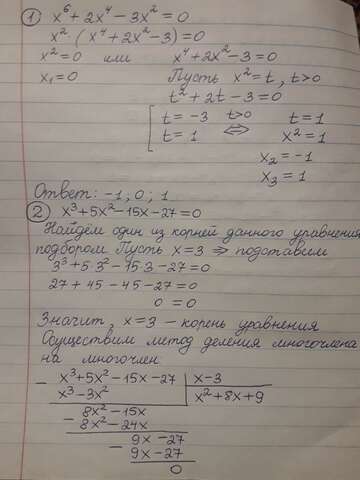 1) x⁶+2x⁴-3x²=0
x²·(x⁴+2x²-3)=0
x²=0 или x⁴+2x²-3=0
x₁=0 Пусть x²=t, t>0
t²+2t-3=0
[ t=-3 t>0 t=1
t=1 ⇔ x²=1
x₂=-1
x₃=1
Ответ: -1; 0; 1
2) x³+5x²-15x-27=0
Найдём один из корней данного уравнения
подбором. Пусть x=3 ⇒ подставим
3³+5·3²-15·3-27=0
27+45-45-27=0
0=0
Значит, x=3 - корень уравнения
Осуществим метод деления многочлена
на многочлен:
- x³+5x²-15x-27 | x-3
x³-3x² | x²+8x+9
- 8x²-15x
8x²-24x
- 9x-27
9x-27
0